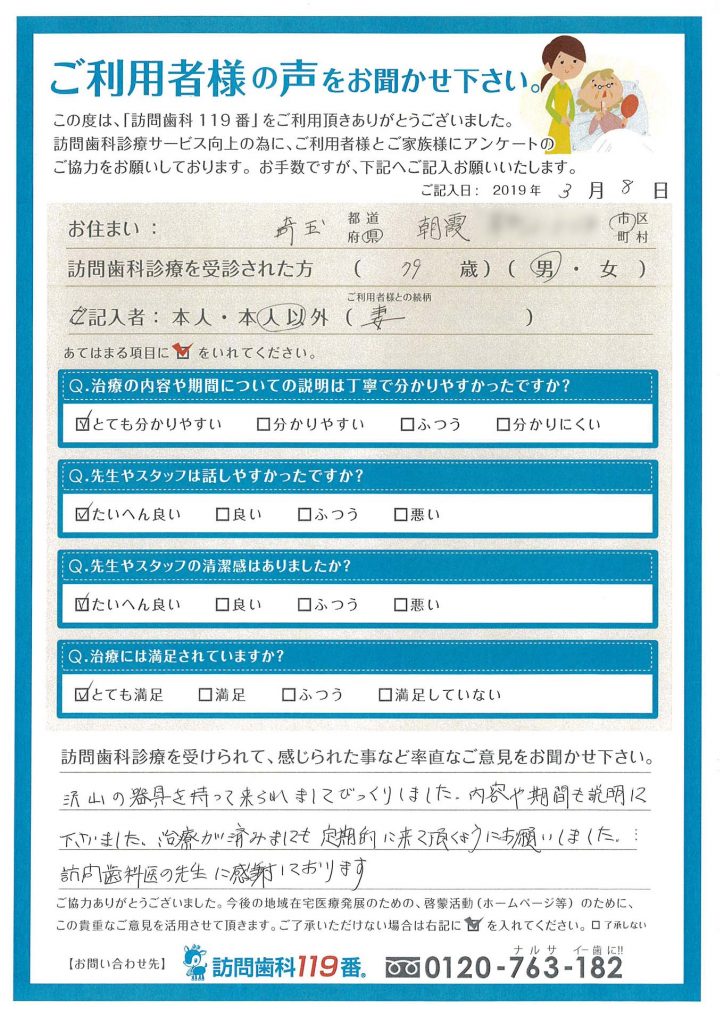 ご利用者様の声をお聞かせ下さい。
この度は、「訪問歯科119番」をご利用頂きありがとうございました。
訪問歯科診療サービス向上の為に、ご利用者様とご家族様にアンケートの
ご協力をお願いしております。お手数ですが、下記へご記入お願いいたします。
ご記入日: 2019年 3 月 8 日
お住まい: 埼玉 都道府県 朝霞 市区町村
訪問歯科診療を受診された方 ( 79 歳)( 男・女 )
ご利用者様との続柄
ご記入者:本人・本人以外( 妻 )
あてはまる項目に☑をいれてください。
Q.治療の内容や期間についての説明は丁寧で分かりやすかったですか?
☑とても分かりやすい □分かりやすい □ふつう □分かりにくい
Q.先生やスタッフは話しやすかったですか?
☑たいへん良い □良い □ふつう □悪い
Q.先生やスタッフの清潔感はありましたか?
☑たいへん良い □良い □ふつう □悪い
Q.治療には満足されていますか?
☑とても満足 □満足 □ふつう □満足していない
訪問歯科診療を受けられて、感じられた事など率直なご意見をお聞かせ下さい。
沢山の器具を持って来られましてびっくりしました。内容や期間も説明して
下さいました、治療が済みましても定期的に来て頂くようにお願いしました。
訪問歯科医の先生に感謝しております
ご協力ありがとうございました。今後の地域在宅医療発展のための、啓蒙活動(ホームページ等)のために、
この貴重なご意見を活用させて頂きます。ご了承いただけない場合は右記に☑を入れてください。□了承しない
【お問い合わせ先】 訪問歯科119番® ナルサ イー歯に!! 0120-763-182